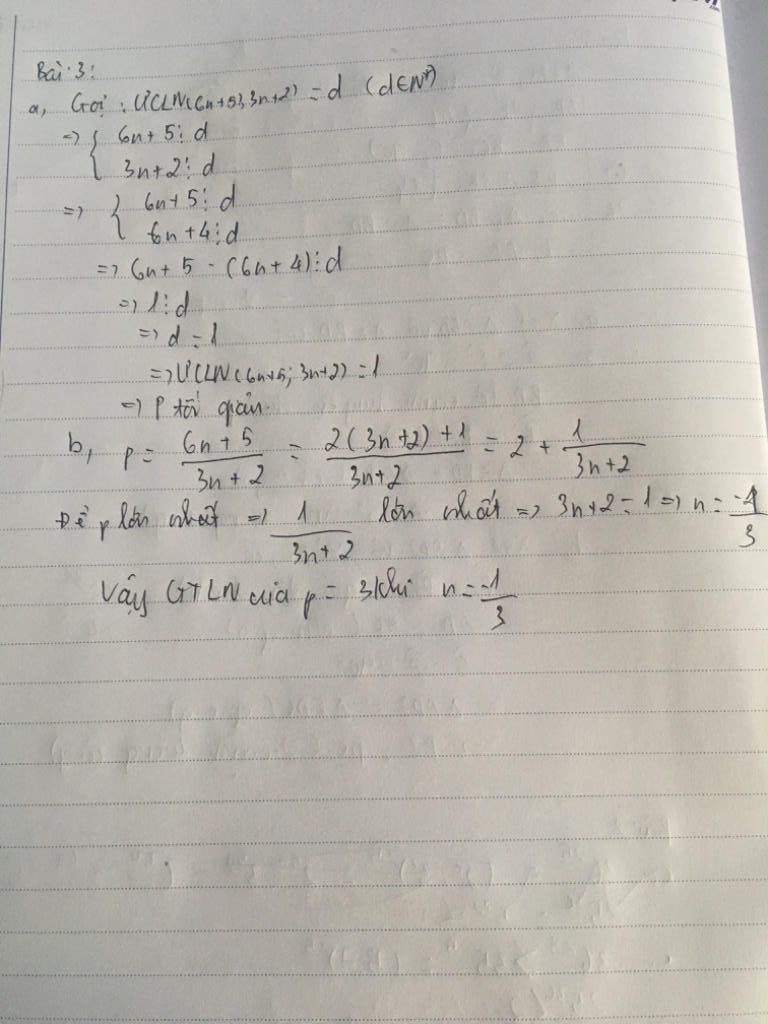 Bài 3:
a, Gọi : ƯCLN(6n+5; 3n+2) = d (d∈N*)
=> { 6n+5 ⋮ d
3n+2 ⋮ d
=> { 6n+5 ⋮ d
6n+4 ⋮ d
=> 6n+5 - (6n+4) ⋮ d
=> 1 ⋮ d
=> d = 1
=> ƯCLN(6n+5; 3n+2) = 1
=> P tối giản.
b, P = (6n+5)/(3n+2) = (2(3n+2)+1)/(3n+2) = 2 + 1/(3n+2)
Để P lớn nhất => 1/(3n+2) lớn nhất => 3n+2 = 1 => n = -1/3
Vậy GTLN của P = 3 khi n = -1/3